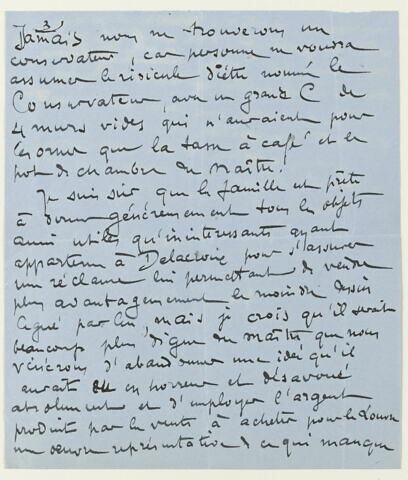 3
Jamais nous ne trouverons un
conservateur, car personne ne voudra
assumer le ridicule d'être nommé le
Conservateur, avec un grand C de
4 murs vides qui n'auraient pour
les orner que la tasse à café et le
pot de chambre du Maître.
Je suis sûr que la famille est prête
à donner généreusement tous les objets
aussi utiles qu'inintéressants ayant
appartenu à Delacroix pour s'assurer
une réclame lui permettant de vendre
plus avantageusement le moindre dessin
légué par lui, mais je crois qu'il serait
beaucoup plus digne du Maître que nous
vénérons d'abandonner une idée qu'il
aurait eu en horreur et désavoué
absolument et d'employer l'argent
produit par la vente à acheter pour le Louvre
une œuvre représentative de ce qui manque